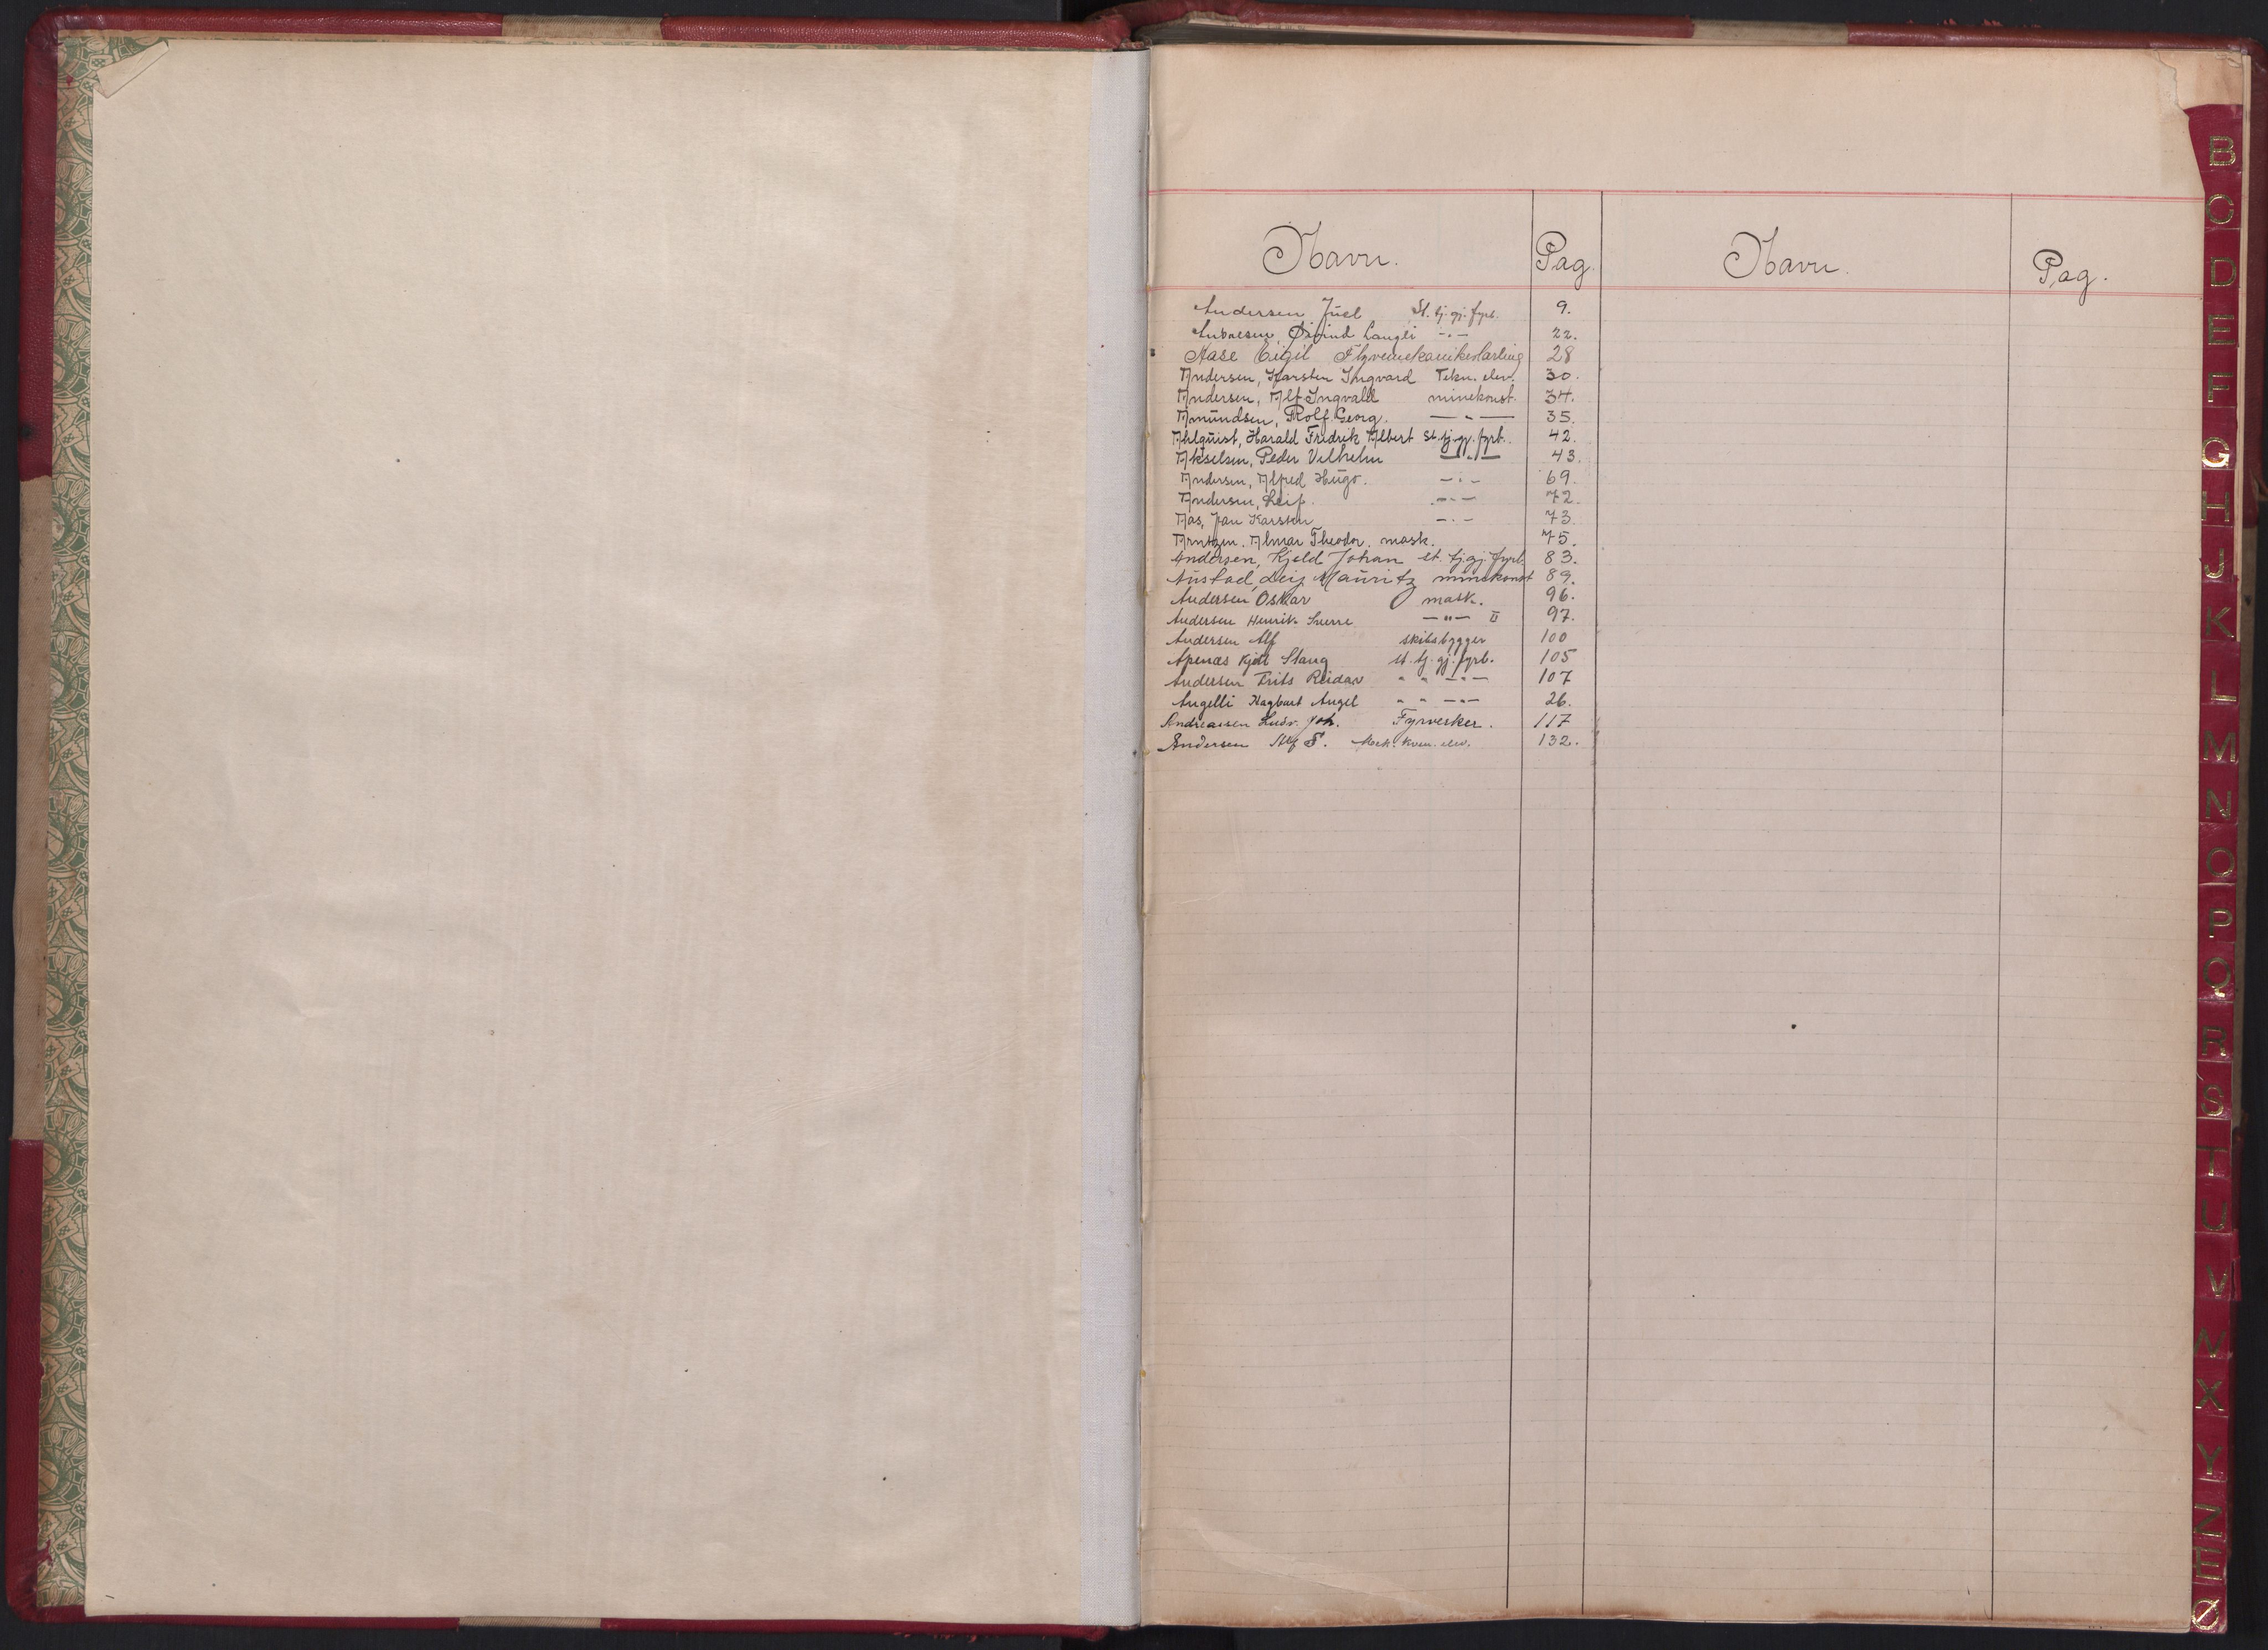 Navn. Pag. Navn. Pag.
Andersen Juel St. tj. gj. fyrb. 9.
Øivind Langli -"- 22.
Aase Eigil Flyvemekanikerlærling 28
Andersen, Karsten Ingvard Tekn. elev. 30.
Andersen, Alf Ingvald minekonst. 34.
Amundsen, Rolf Georg. —"— 35.
Ahlquist, Harald Fredrik Albert St. tj. gj. fyrb. 42.
Akselsen, Peder Vilhelm —"— 43.
Andersen, Alfred Hugo. -"- 69.
Andersen, Leif. -"- 72.
Aas, Jan Karsten -"- 73.
Arntzen, Almar Theodor, mask. 75.
Andersen, Kjeld Johan st. tj. gj. fyrb. 83.
Austad, Leif Mauritz minekonst 89.
Andersen Oskar mask. 96.
Andersen Henrik Sverre —"— II 97.
Andersen Alf skibsbygger 100
Apenæs Kjell Stang st. tj. gj. fyrb. 105
Andersen Frits Reidar " " —"— 107
Angelli Hagbart Angel " " —"— 26.
Andreassen Ludv. Joh. Fyrverker. 117
Andersen Alf S. Mek. elev. 132.
B
C
D
E
F
G
H
J
K
L
M
N
O
P
Q
R
S
T
U
V
W
X
Y
Z
Æ
Ø